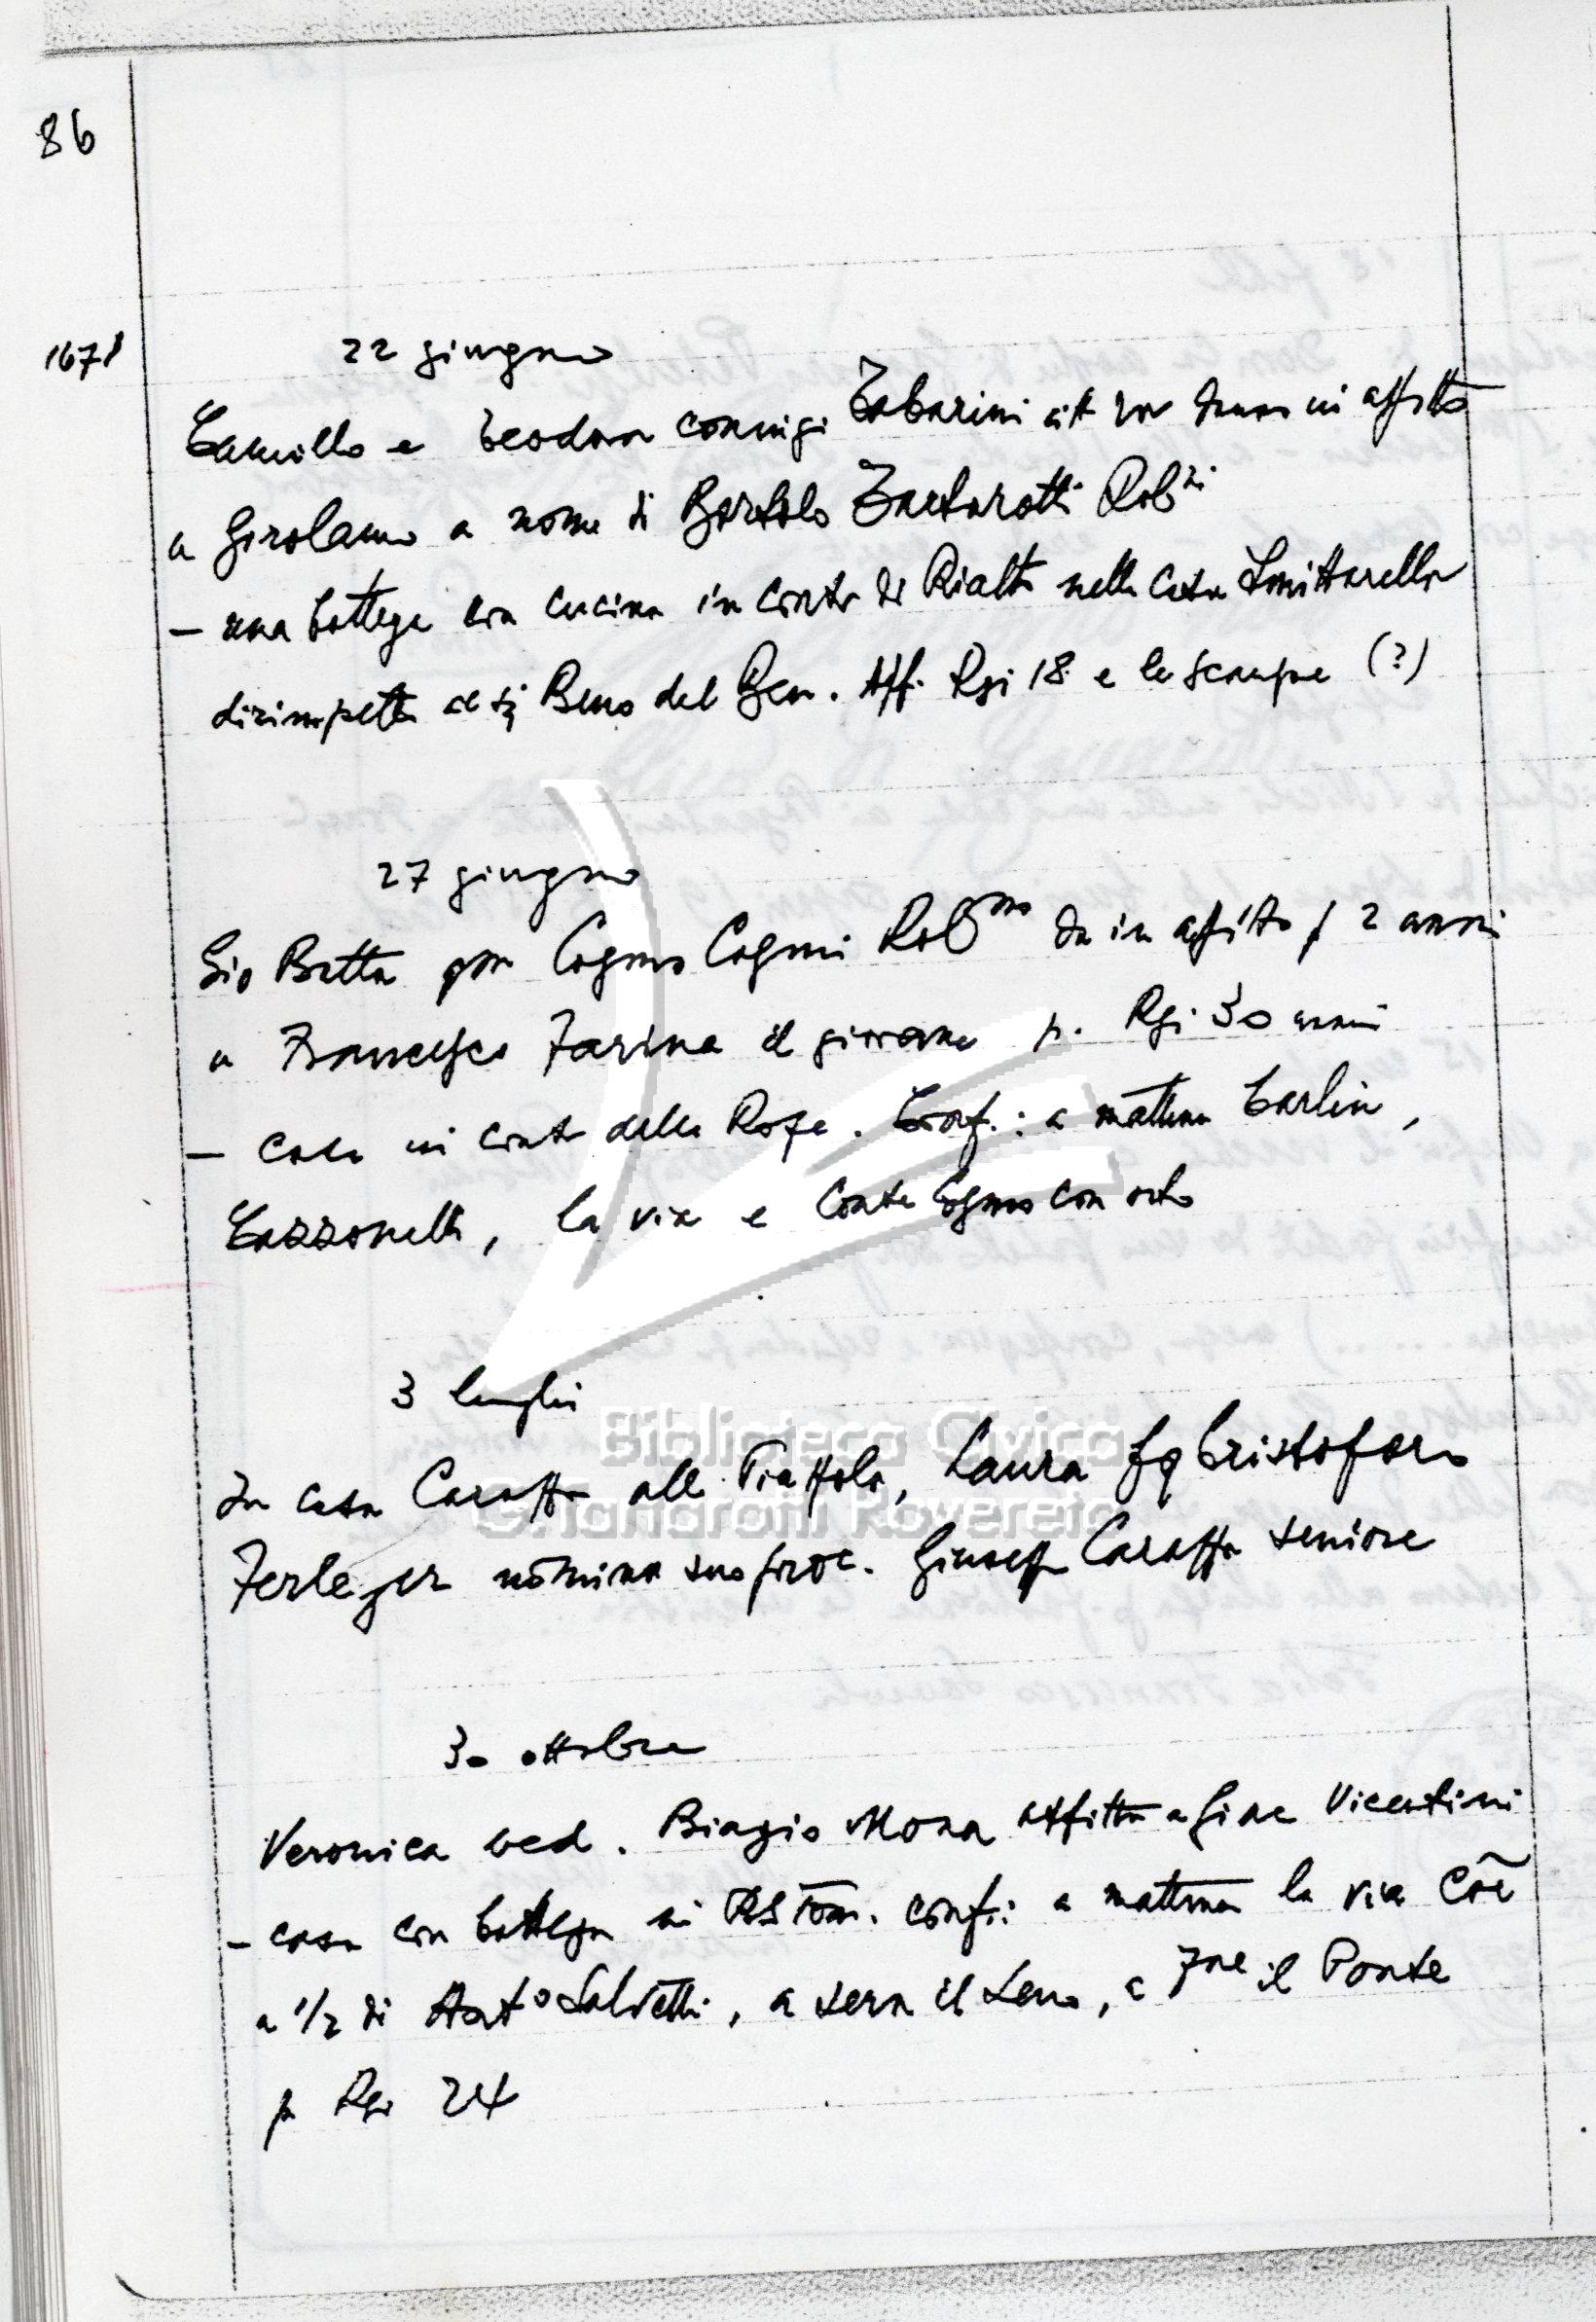 86
1678
22 giugno
Camillo e Teodora coniugi Tabarini danno in affitto
a Girolamo a nome di Bortolo Tartarotti Rob.ti
- una bottega con cucina in contr di Rialto nella casa Smittarella
dirimpetto al Sig Beno del Ben. Aff. Rgi 18 e le scarpe (?)
27 giugno
Gio Batta qm Cogmo Cogmi Rob.no da in affitto p 2 anni
a Francesco Farina il giovane p. Rgi 30 annui
- casa in contr della Roza. Conf.: a mattina Carlin,
Cazzonelli, la via e Conte Cogmo con orto
3 luglio
In casa Caraffa alla Piazzola, Laura fq Cristoforo
Ferleger nomina suo proc. Giuseppe Caraffa seniore
30 ottobre
Veronica ved. Biagio Mona affitta a Giac Vicentini
- casa con bottega in S Tom. conf.: a mattina la via Cõe
a 1/2 di Ant.o Salvetti, a sera il Leno, a 7ne il Ponte
p Rgi 24
Biblioteca Civica
G. Tartarotti Rovereto